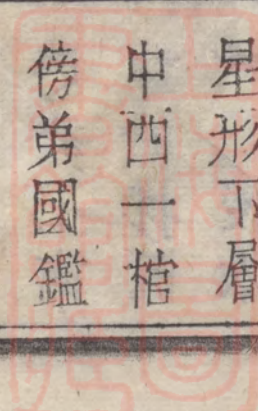 星形下層
中西一棺
傍弟國鑑